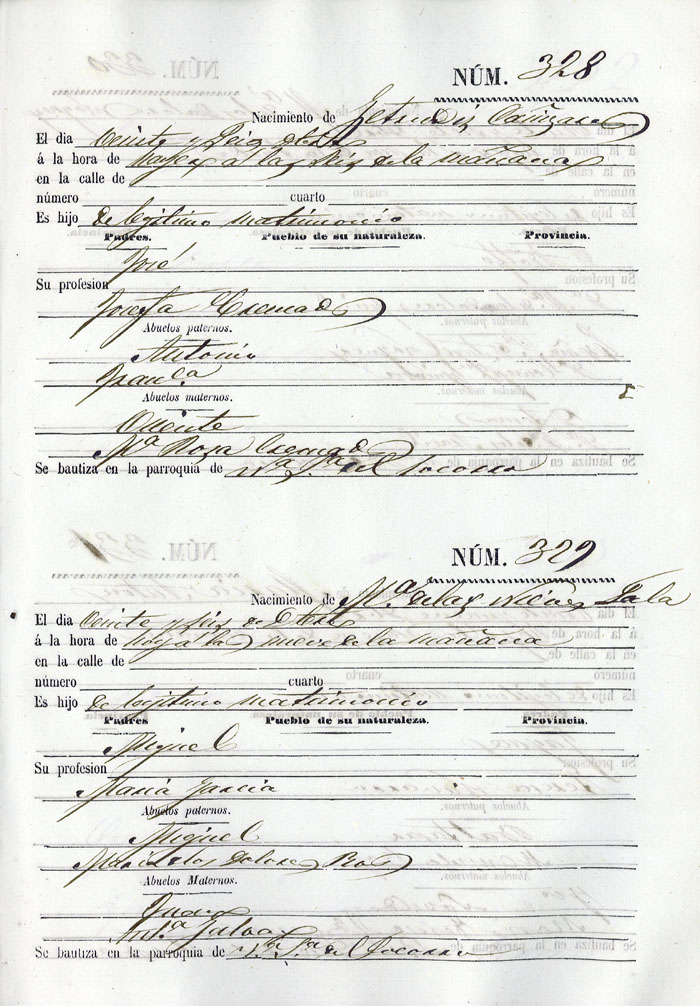 NÚM. 328
Nacimiento de Getrudis Cañizares
El dia Veinte y Seis
á la hora de á las Seis de la mañana
en la calle de
número cuarto
Es hijo de legitimo matrimonio
Padres. Pueblo de su naturaleza. Provincia.
José
Su profesion
Josefa Cremades
Abuelos paternos.
Antonio
Franca
Abuelos maternos.
Vicente
Ma Rosa Cremades
Se bautiza en la parroquia de Na Sra del Socorro
NÚM. 329
Nacimiento de Ma de las Nieves
El dia Veinte y Seis de
á la hora de á las nueve de la mañana
en la calle de
número cuarto
Es hijo de legitimo matrimonio
Padres Pueblo de su naturaleza. Provincia.
Miguel
Su profesion
Maria Garcia
Abuelos paternos.
Miguel
Maria de los Dolores Ros
Abuelos Maternos.
Juan
Se bautiza en la parroquia de Na Sra del Socorro